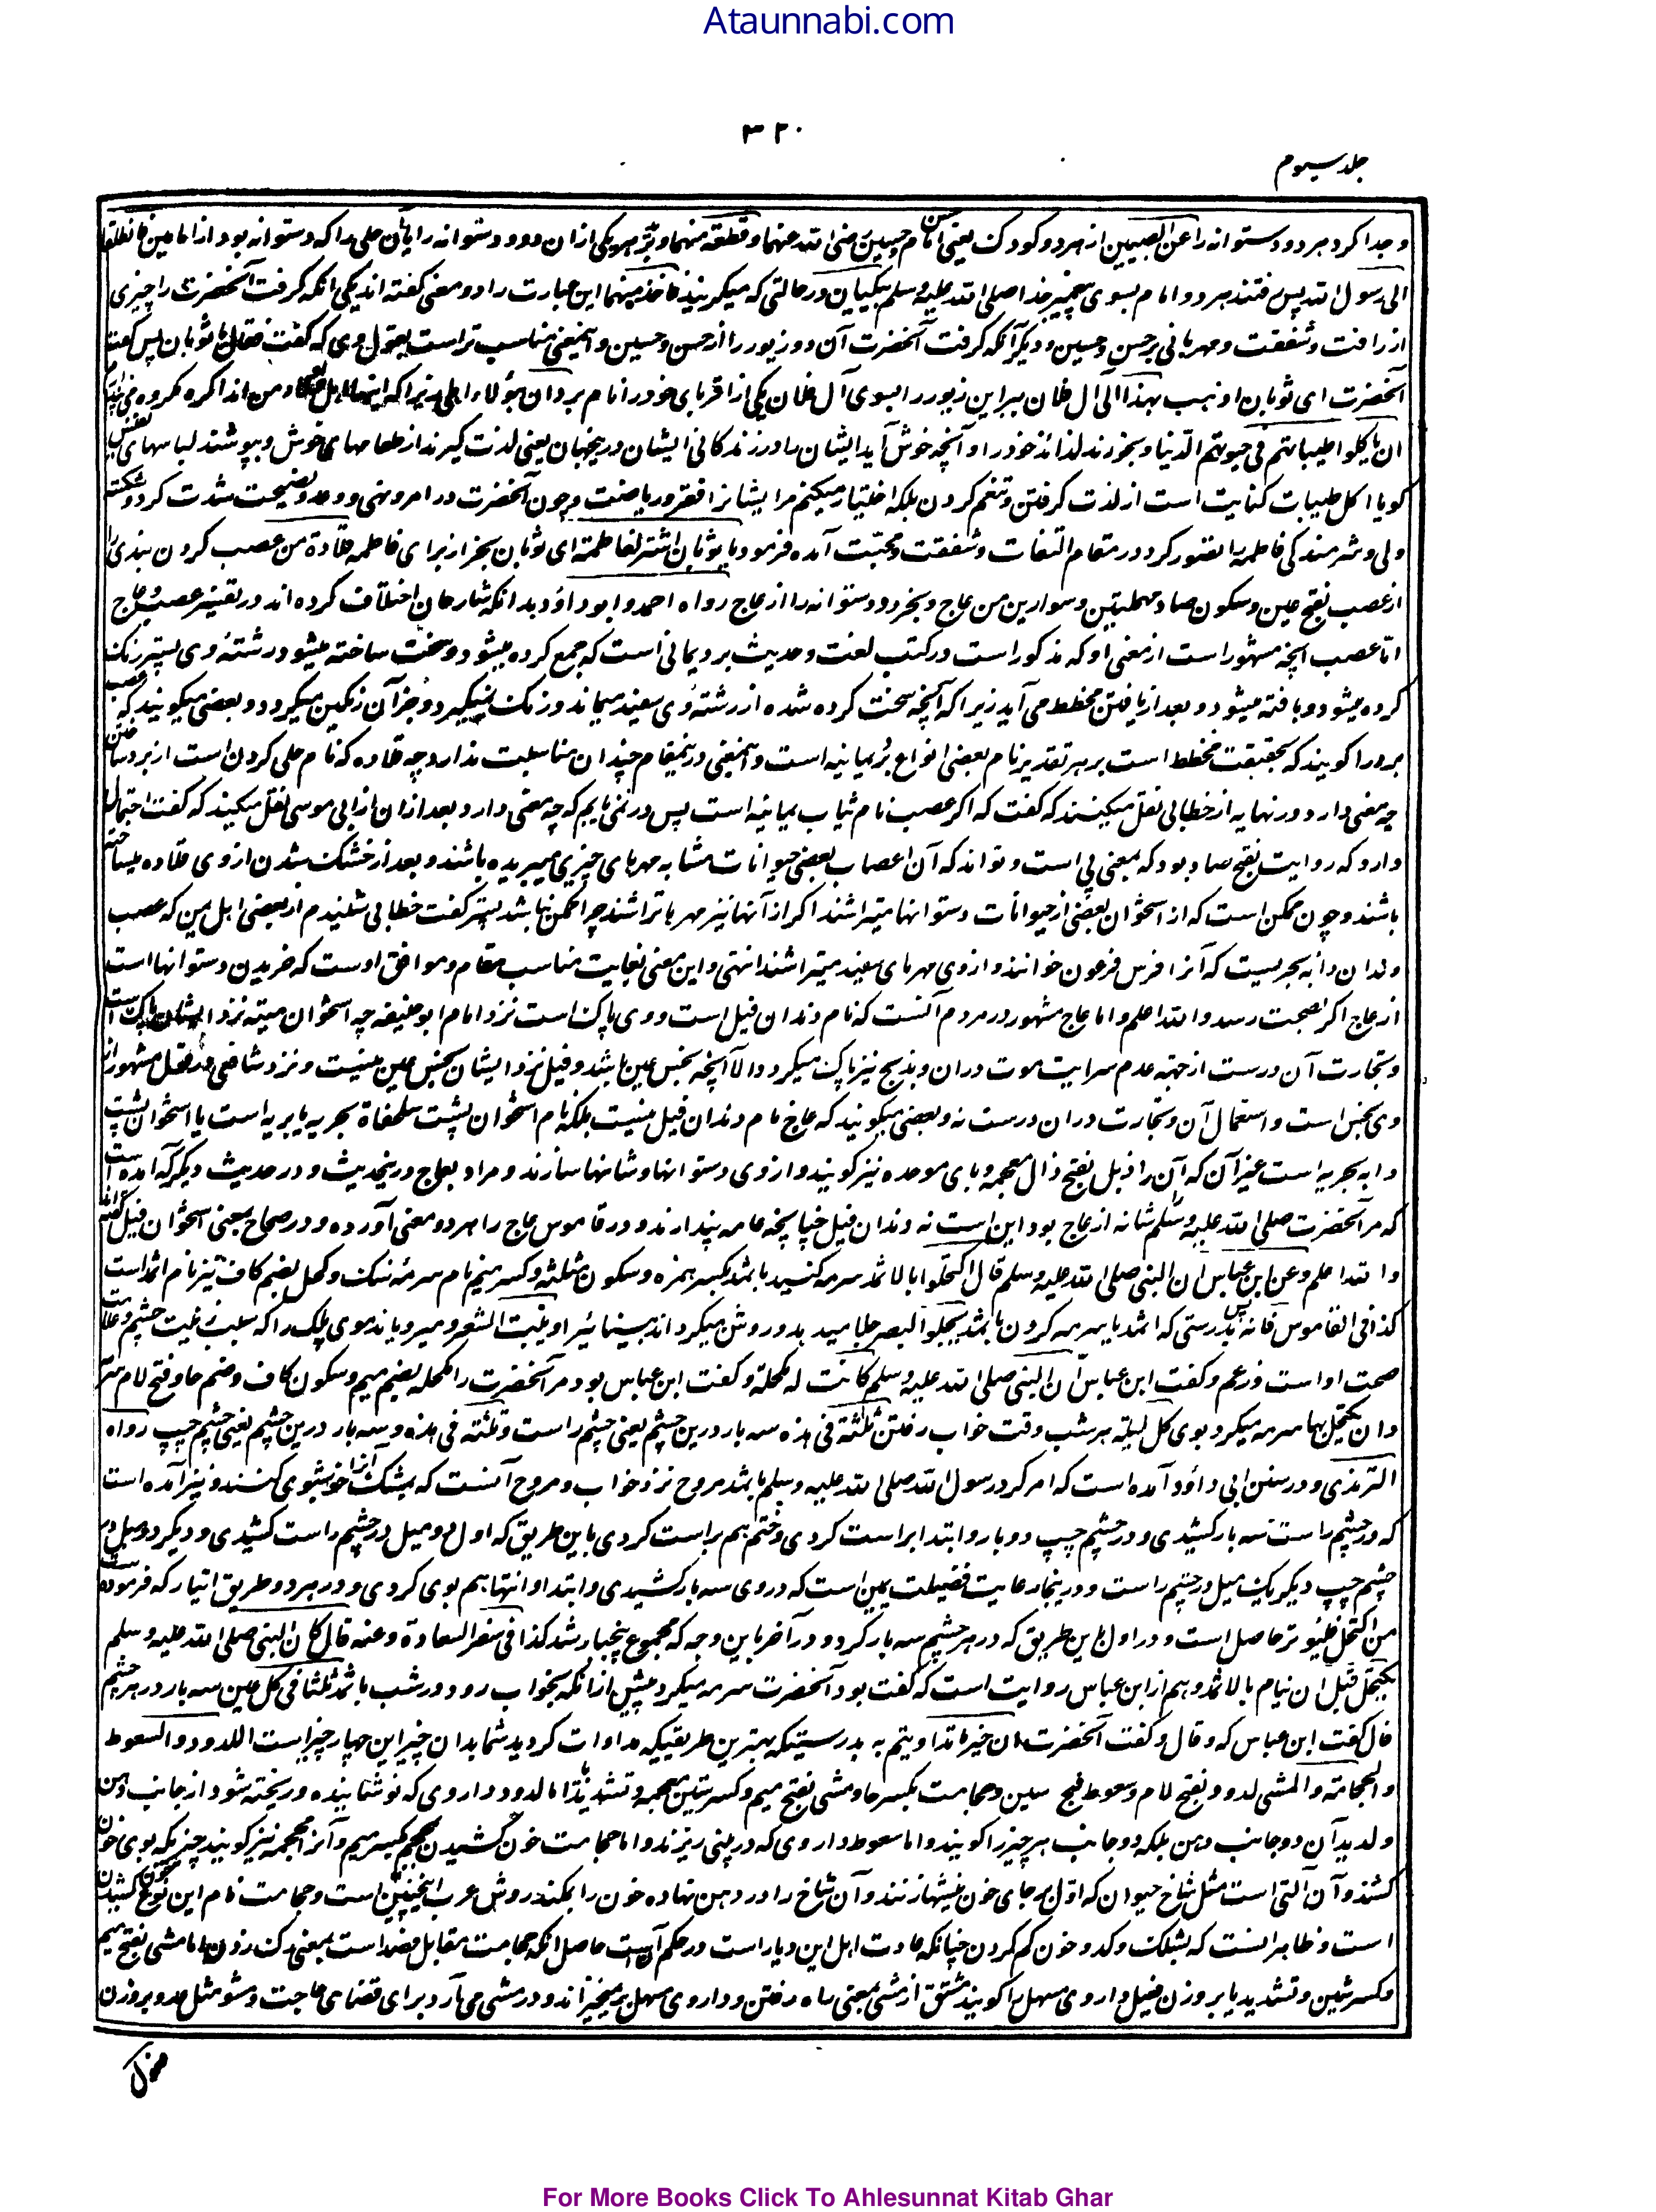 Ataunnabi.com
۳۲۰
جلد سیوم
و جدا کرد هر دو دستوانه را عن الصبیین از هر دو کودک یعنی امام حسن و حسین رضی الله عنهما و قطعه منهما و برید هر یکی ازان دو دستوانه را
الی رسول الله پس رفتند هر دو امام بسوی پیغمبر خدا صلی الله علیه وسلم یبکیان در حالتی که میگریند فاخذه منهما این عبارت را دو معنی گفته اند یکی انکه گرفت آنحضرت را چیزی
از رافت و شفقت و مهربانی بر حسن و حسین و دیگر آنکه گرفت آنحضرت آن دو زیور را از حسن و حسین و این معنی مناسب تر است بقول وی که گفت فقال یا ثوبان پس گفت
آنحضرت ای ثوبان اذهب بهذا الی آل فلان ببر این زیور را بسوی آل فلان یکی از اقربای خود را نام برد ان هؤلاء اهلی زیرا که اینها اهل من اند اکره مکروه می پندارم
ان یاکلوا طیباتهم فی حیوتهم الدنیا و بخورند لذائذ خود را و آنچه خوش آید ایشان را در زندگانی ایشان در یجهان یعنی لذت گیرند از طعامهای خوش و بپوشند لباسهای نفیس
گویا اکل طیبات کنایت است از لذت گرفتن و تنعم کردن بلکه اختیار میکنم مر ایشانرا فقر و ریاضت و چون آنحضرت در امر و نهی و وعد و نصیحت شدت کرد و شکسته
دلی و شرمندگی فاطمه را تصور کرد در مقام التفات و شفقت و محبت آمده فرمود یا ثوبان اشتر لفاطمة ای ثوبان بخر از برای فاطمه قلادة من عصب گردن بندی را
از عصب بفتح عین و سکون صاد مهملتین و سوارین من عاج و بخر دو دستوانه را از عاج رواه احمد و ابو داؤد بدانکه شارحان اختلاف کرده اند در تفسیر عصب و عاج
اما عصب انچه مشهور است از معنی او که مذکور است در کتب لغت و حدیث برد یمانی است که جمع کرده میشود و سخت ساخته میشود رشتهٔ وی پستر رنگ
کرده میشود و بافته میشود و بعد از بافتن مخطط می آید زیرا که آنچه سخت کرده شده از رشتهٔ وی سفید میماند و رنگ نمیگیرد و جز آن رنگین میگردد و بعضی میگویند که عصب
برد را گویند که بحقیقت مخطط است بر هر تقدیر نام بعضی انواع برد یمانیه است و اینمعنی درینمقام چندان مناسبت ندارد چه قلاده که نام حلی گردن است از برد ساختن
چه معنی دارد و در نهایه از خطابی نقل میکنند که گفت که اکر عصب نام ثیاب یمانیه است پس در نمی یابیم که چه معنی دارد بعد ازان از ابی موسی نقل میکند که گفت احتمال
دارد که روایت بفتح صاد بود که بمعنی پی است و تواند که آن اعصاب بعضی حیوانات مشابه مهرهای چیزی میبریده باشند و بعد از خشک شدن ازوی قلاده میساخته
باشند و چون ممکن است که از استخوان بعضی از حیوانات دستوانها میتراشند اکر از آنها نیز مهرها تراشند چرا ممکن نباشد پستر گفت خطابی شنیدم از بعضی اهل یمن که عصب
دندان دابه بحریست که آنرا فرس فرعون خوانند و ازوی مهرهای سفید میتراشند انتهی و این معنی بغایت مناسب مقام و موافق اوست که خریدن دستوانها است
از عاج اکر بصحت رسد و الله اعلم و اما عاج مشهور در مردم آنست که نام دندان فیل است و وی پاک است نزد امام ابو حنیفه چه استخوان میته نزد ایشان پاک است
و تجارت آن درست از جهته عدم سرایت موت دران و بذبح نیز پاک میگردد الا آنچه نجس عین باشد و فیل نزد ایشان نجس عین نیست و نزد شافعی در نقل مشهور از
وی نجس است و استعمال آن و تجارت دران درست نه و بعضی میگویند که عاج نام دندان فیل نیست بلکه نام استخوان پشت سلحفاة بحریه یا بریه است یا استخوان پشت
دابه بحریه است غیر آن که آن را ذبل بفتح ذال معجمه و بای موحده نیز گویند و ازوی دستوانها و شانها سازند و مراد بعاج درینحدیث و در حدیث دیگر که آمده است
که مر آنحضرت صلی الله علیه وسلم شانه از عاج بود این است نه دندان فیل چنانچه عامه پندارند و در قاموس عاج را بهر دو معنی آورده و در صحاح بمعنی استخوان فیل گفته
و الله اعلم وعن ابن عباس ان النبی صلی الله علیه وسلم قال اکتحلوا بالاثمد سرمه کنید باثمد بکسر همزه و سکون مثلثه و کسر میم نام سرمه سنگ و کحل بضم کاف نیز نام اثمد است
کذا فی القاموس فانه پس بدرستی که اثمد یا سرمه کردن باثمد یجلو البصر جلا میدهد و روشن میگرداند بینائی را و ینبت الشعر و میرویاند موی پلک را که سبب زینت چشم و علامت
صحت او است و زعم و گفت ابن عباس ان النبی صلی الله علیه وسلم کانت له مکحلة و گفت ابن عباس بود مر آنحضرت را مکحله بضم میم و سکون کاف و ضم حا و فتح لام
دان یکتحل بها سرمه میکرد بوی کل لیلة هر شب وقت خواب رفتن ثلثة فی هذه سه بار درین چشم یعنی چشم راست و ثلثة فی هذه و سه بار درین چشم یعنی چشم چپ رواه
الترمذی و در سنن ابی داؤد آمده است که امر کرد رسول الله صلی الله علیه وسلم باثمد مروح نزد خواب و مروح آنست که بمشک آنرا خوشبوی کنند و نیز آمده است
که در چشم راست سه بار کشیدی و در چشم چپ دو بار و ابتدا براست کردی و ختم هم براست کردی باین طریق که اول دو میل در چشم راست کشیدی و دیگر دو میل در
چشم چپ دیگر یک میل در چشم راست و در ینجا رعایت فضیلت یمین است که در وی سه بار کشیدی و ابتدا و انتها هم بوی کردی و در هر دو طریق ایتار که فرموده
من اکتحل فلیوتر حاصل است و در اول باین طریق که در هر چشم سه بار کرد و در آخر باین وجه که مجموع پنجبار شد کذا فی سفر السعادة وعنه قال کان النبی صلی الله علیه وسلم
یکتحل قبل ان ینام بالاثمد و هم از ابن عباس روایت است که گفت بود آنحضرت سرمه میکرد پیش ازانکه بخواب رود در شب باثمد ثلثا فی کل عین سه بار در هر چشم
قال گفت ابن عباس که و قال و گفت آنحضرت ان خیر ما تداویتم به بدرستیکه بهترین طریقیکه مداوات کردید شما بدان چیز این چهار چیز است اللدود و السعوط
و الحجامة و المشی لدود بفتح لام و سعوط بفتح سین و حجامت بکسر حا و مشی بفتح میم و کسر شین معجمه و تشدید یا اما لدود داروی که نوشانیده و ریخته شود از جانب دهن
و لدید آن دو جانب دهن بلکه دو جانب هر چیز را گویند و اما سعوط داروی که در بینی ریزند و اما حجامت خون کشیدن محجم بکسر میم و آنرا محجمه نیز گویند چیزیکه بوی خون
کشند و آن آلتی است مثل شاخ حیوان که اول بر جای خون نیشها زنند و آن شاخ را در دهن نهاده خون را بمکند روش عرب اینچنین است و حجامت نام این نوع خون کشیدن
است و ظاهر انست که بشلک و کدو خون کم کردن چنانکه عادت اهل این دیار است در حکم آنست حاصل انکه حجامت مقابل فصد است بمعنی رگ زدن و اما مشی بفتح میم
و کسر شین و تشدید یا بر وزن فعیل داروی مسهل را گویند مشتق از مشی بمعنی راه رفتن و داروی مسهل بر میخیزاند و در مشی می آرد برای قضای حاجت و مشو مثل عدو بر وزن
For More Books Click To Ahlesunnat Kitab Ghar